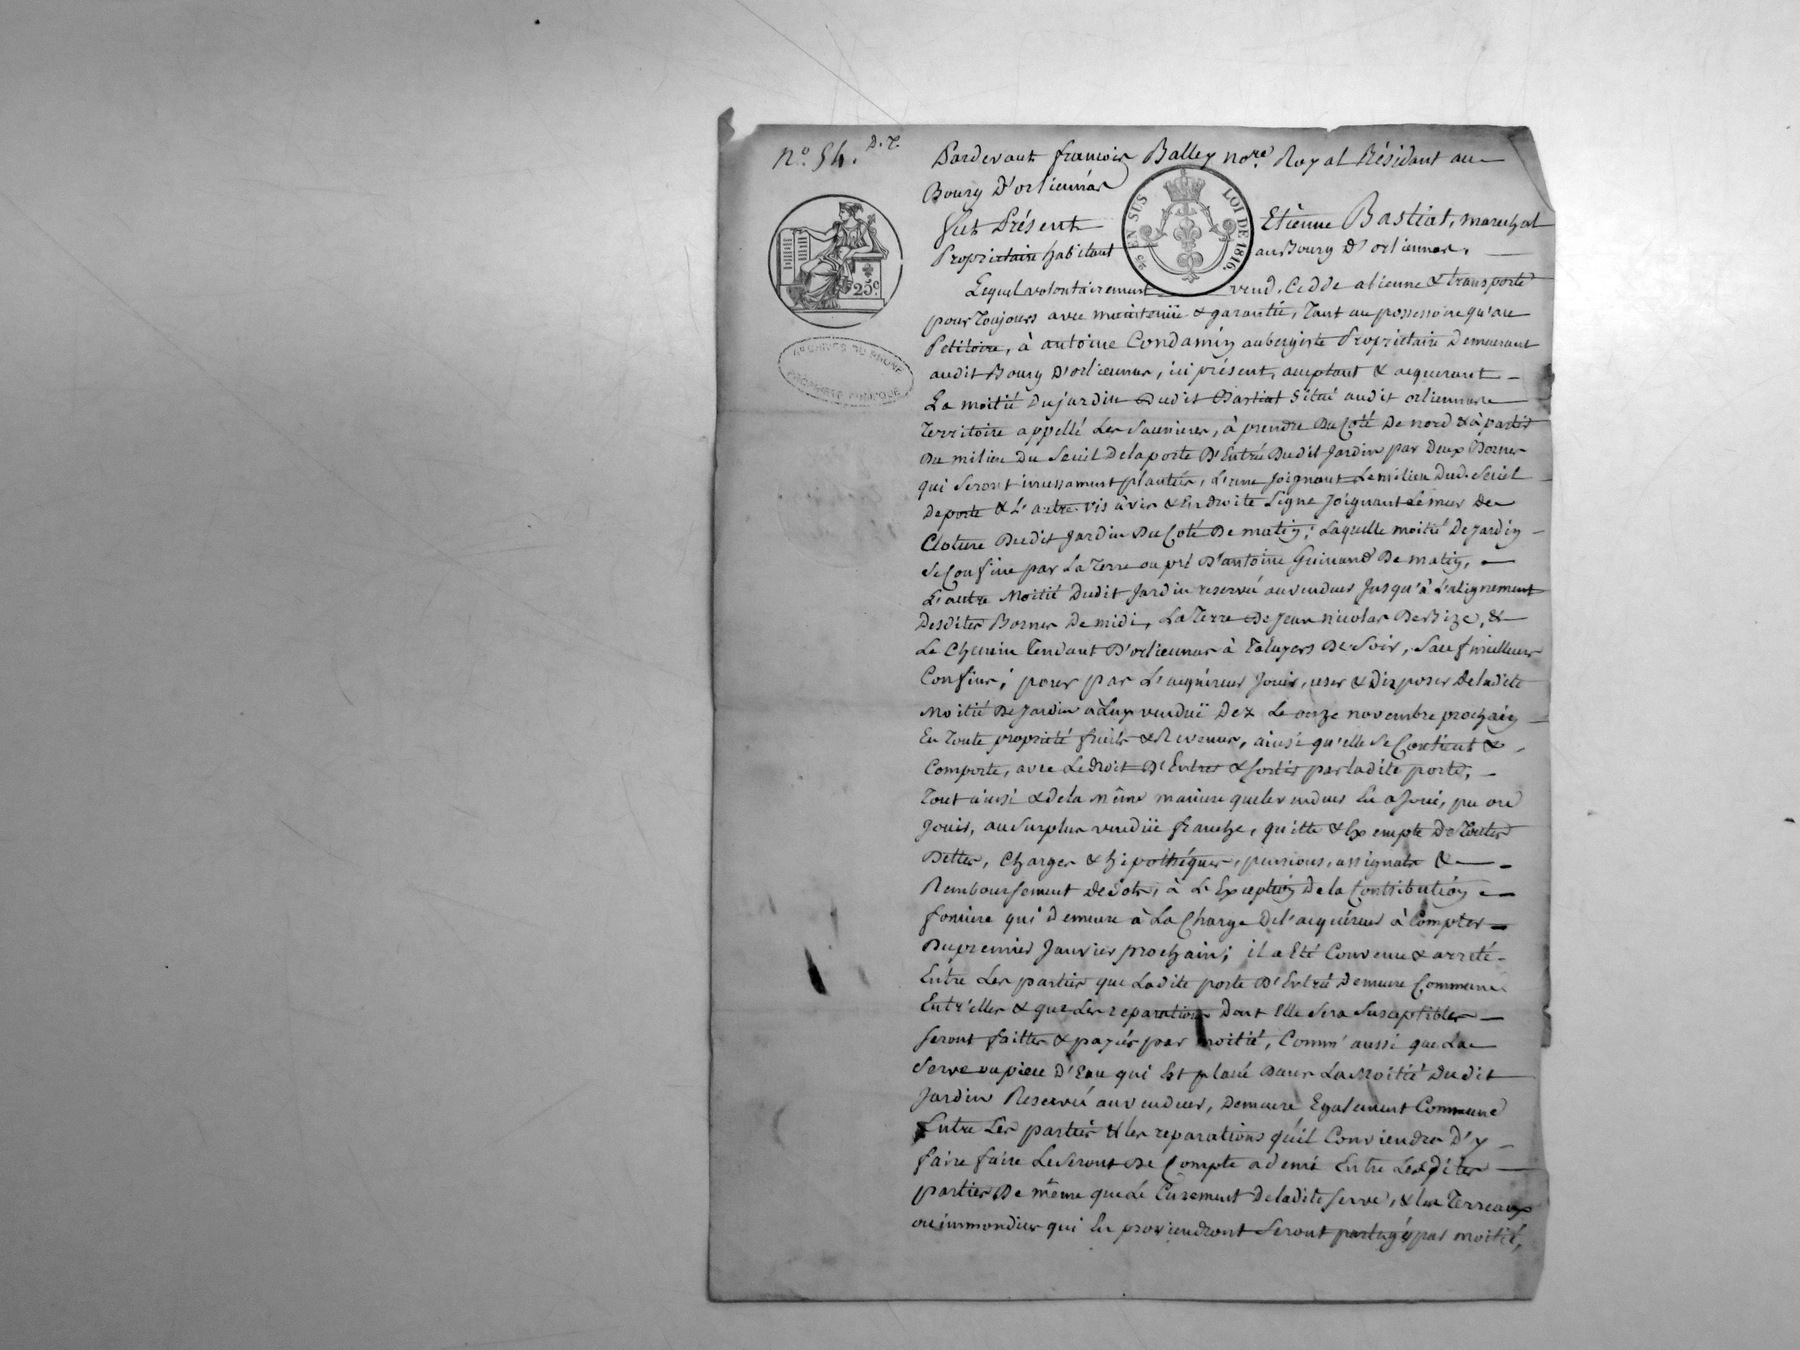 n.° 54. D. T.
Pardevant françois Balley no.re Royal Résidant au
Bourg d'orliénas
fut Présent Etiènne Bastiat, marechal
Propriétaire habitant au Bourg d'orliennas,
EN SUS
LOI DE 1816.
25.c
ARCHIVES DU RHONE
PROPRIÉTÉ PUBLIQUE
Lequel volontairement vend, Cedde alienne & transporte
pour Toujours avec maintenüe & garantie, Tant au possessoire qu'au
Petitoire, à antoine Condamin aubergiste Propriétaire Demeurant
audit Bourg D'orliennas, ici présent, acceptant & acquerant
La moitié Du jardin Dudit Bastiat Situé audit orliennas
Territoire appellé Les Saunieres, à prendre Du Coté De nord & à partir
Du milieu Du Seuil De la porte D'Entrée Dudit Jardin par Deux Bornes
qui Seront incessament plantées, L'une Joignant Le milieu Dud. Seuil
De porte & L'autre vis à vis & En droite Ligne Joignant Le mur De
Cloture Dudit Jardin Du Coté De matin; Laquelle moitié De Jardin
Se Confine par La Terre ou pré D'antoine Guinand De matin,
L'autre Moitié Dudit Jardin reservée au vendeur Jusqu'à L'alignement
Desdites Bornes De midi, La Terre De Jean nicolas Debize, &
Le Chemin Tendant D'orliennas à Taluyers De Soir, Sauf meilleurs
Confins; pour par L'acquéreur Jouir, user & Disposer De ladite
Moitié De Jardin à Luy vendüe Dez Le onze novembre prochain
En Toute propriété fruits & Revenus, ainsi qu'elle Se Contient &
Comporte, avec Le droit D'Entrer & Sortir par ladite porte,
Tout ainsi & de la même maniere que le vendeur En a Joui, pu ou
Jouir, au Surplus vendüe franche, quitte & Exempte De Toutes
Dettes, Charges & hipothéques, pensions, assignats &
Remboursement De Dots, à L'Exception De la Contribution
fonciere qui Demeure à La Charge De l'acquéreur à Compter
Du premier Janvier prochain; il a Eté Convenu & arrété
Entre Les parties que Ladite porte D'Entrée Demeure Commune
Entr'elles & que Les reparations Dont Elle Sera Susceptible
Seront faittes & payées par moitié, Comm' aussi que La
Serve ou piece D'Eau qui Est placé Dans La Moitié Dudit
Jardin Reservée au vendeur, Demeure Egalement Commune
Entre Les parties & les réparations qu'il Conviendra D'y
faire faire Le Seront De Compte a demi Entre Lesdites
parties De même que Le Curement De ladite Serve, & les Terreaux
ou immondices qui En proviendront Seront partagés par moitié,